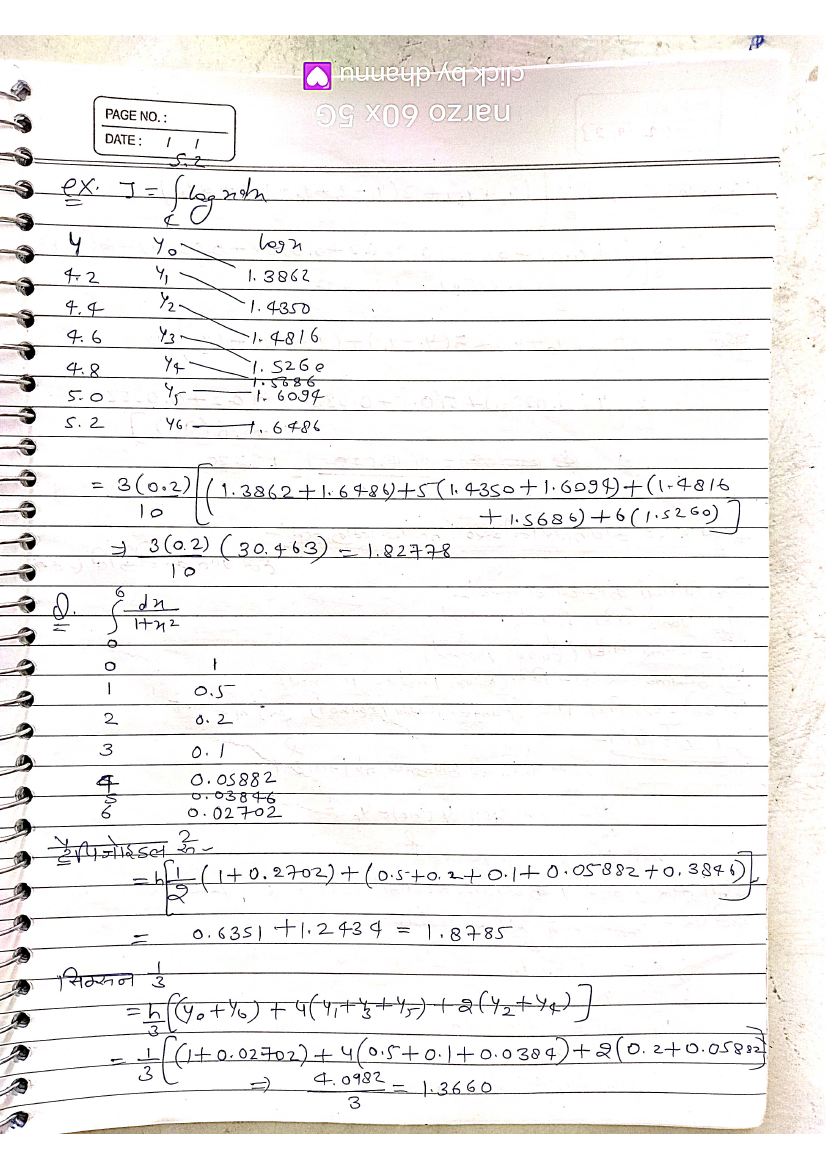 click by dhannu
narzo 60x 5G
PAGE NO. :
DATE : / /
ex. I = ∫₄^5.2 log x dx
4 y₀ log x
4.2 y₁ 1.3862
4.4 y₂ 1.4350
4.6 y₃ 1.4816
4.8 y₄ 1.5260
1.5686
5.0 y₅ 1.6094
5.2 y₆ 1.6486
= 3(0.2)/10 [(1.3862+1.6486)+5(1.4350+1.6094)+(1.4816
+1.5686)+6(1.5260)]
⇒ 3(0.2)/10 (30.463) = 1.82778
Q. ∫₀^6 dx/1+x²
0 1
1 0.5
2 0.2
3 0.1
4 0.05882
5 0.03846
6 0.02702
= h[1/2 (1+0.2702)+(0.5+0.2+0.1+0.05882+0.3846)]
= 0.6351+1.2434 = 1.8785
सिम्सन 1/3
= h/3[(y₀+y₆) + 4(y₁+y₃+y₅) + 2(y₂+y₄)]
= 1/3[(1+0.02702)+4(0.5+0.1+0.0384)+2(0.2+0.05882]
⇒ 4.0982/3 = 1.3660